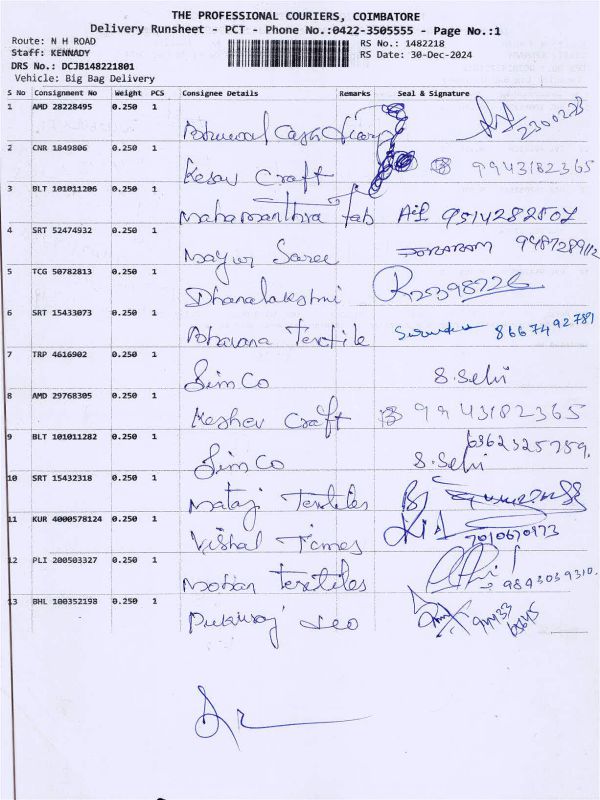 THE PROFESSIONAL COURIERS, COIMBATORE
Delivery Runsheet - PCT - Phone No.:0422-3505555 - Page No.:1
Route: N H ROAD
RS No.: 1482218
Staff: KENNADY
RS Date: 30-Dec-2024
DRS No.: DCJB148221801
Vehicle: Big Bag Delivery
S No Consignment No Weight PCS Consignee Details Remarks Seal & Signature
1 AMD 28228495 0.250 1
2 CNR 1849806 0.250 1
Kesav Craft 9943182365
3 BLT 101011206 0.250 1
Mahamanthra Fab
4 SRT 52474932 0.250 1
Mayur Saree
5 TCG 50782813 0.250 1
Dhanalakshmi
6 SRT 15433073 0.250 1
Bhavana Textile 8667492781
7 TRP 4616902 0.250 1
Sim Co S.Selvi
8 AMD 29768305 0.250 1
Keshav Craft 9943182365
9 BLT 101011282 0.250 1
Sim Co S.Selvi
10 SRT 15432318 0.250 1
Mataji Textiles
11 KUR 4000578124 0.250 1
Vishal Times
12 PLI 200503327 0.250 1
Mohan Textiles
13 BHL 100352198 0.250 1